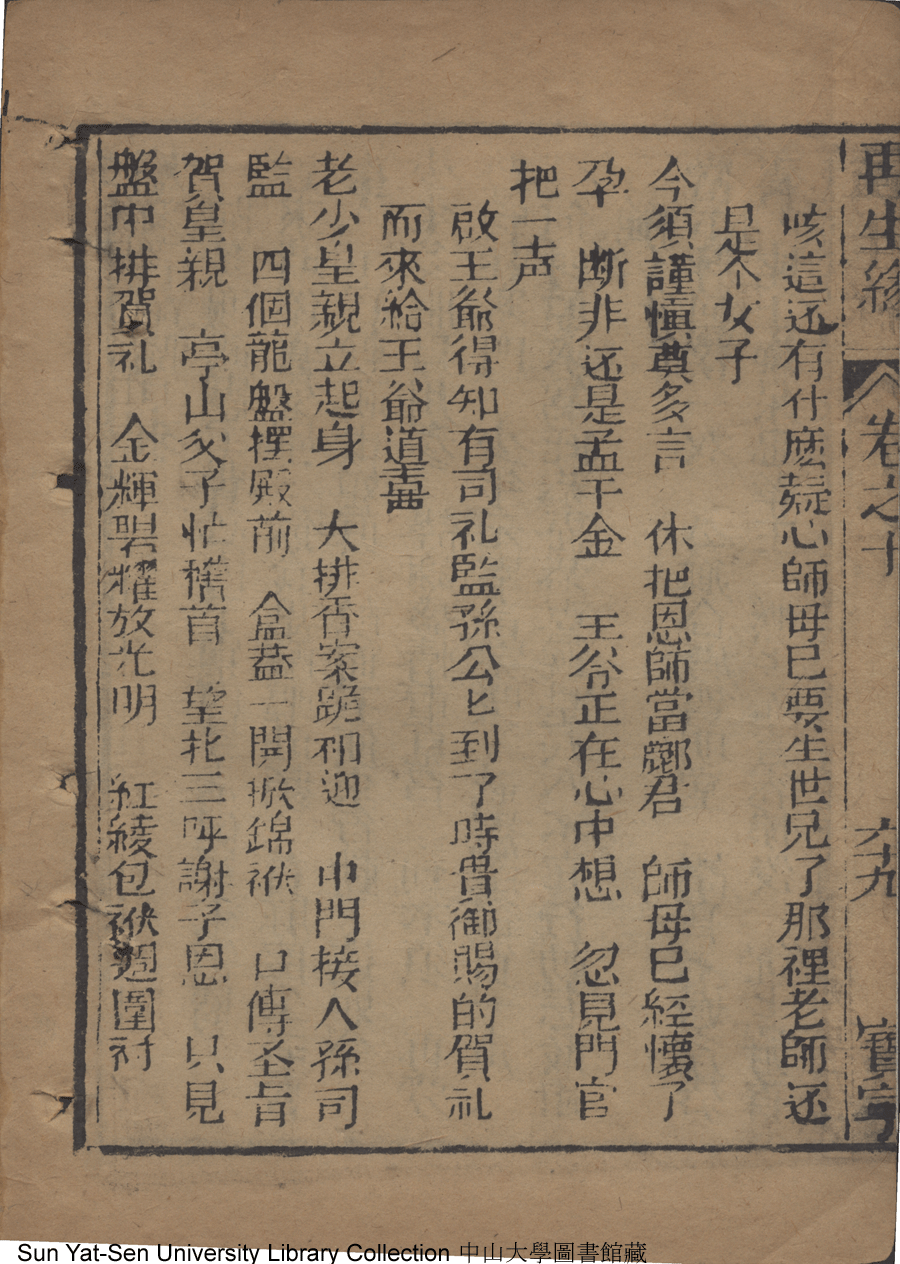 再生緣 卷之十 六九 寶寧
咳這还有什麽疑心師母已要生世兄了那裡老師还
是个女子
今須謹慎莫多言 休把恩師當酈君 師母已經懷了
孕 断非还是孟千金 王爷正在心中想 忽見門官
把一声
啟王爺得知有司礼監孫公匕到了時貴御賜的賀礼
而來給王爺道喜
老少皇親立起身 大排香案跪和迎 中門接入孫司
監 四個龍盤擺殿前 盒盖一開掀錦袱 口傳圣旨
賀皇親 亭山父子忙稽首 望北三呼謝子恩 只見
盤中排賀礼 金輝碧耀放光明 紅綾包袱週圍衬
Sun Yat-Sen University Library Collection 中山大學圖書館藏